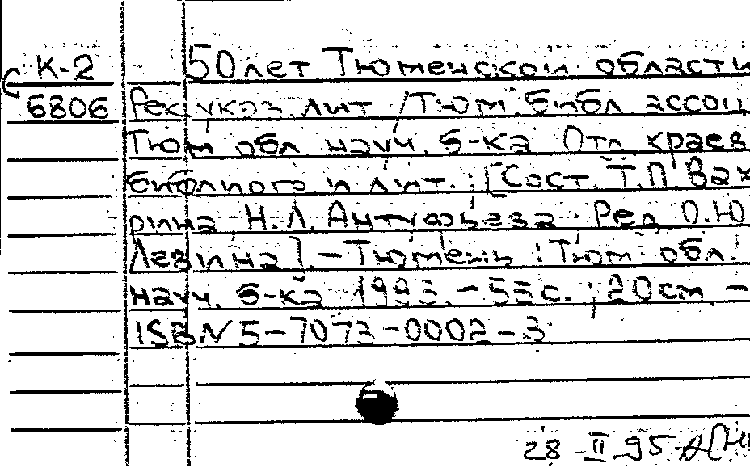 К-2 50 лет Тюменской области
6806 Рек указ лит /Тюм. библ ассоц
Тюм обл науч. б-ка Отд краев
библиогр и лит. ; [Сост. Т.П Вах
рина Н.Л. Антуфьева Ред О.Ю
Левина]. - Тюмень : Тюм обл.
науч. б-ка 1993. - 53 с. ; 20 см -
ISBN 5-7073-0002-3
28 II 95